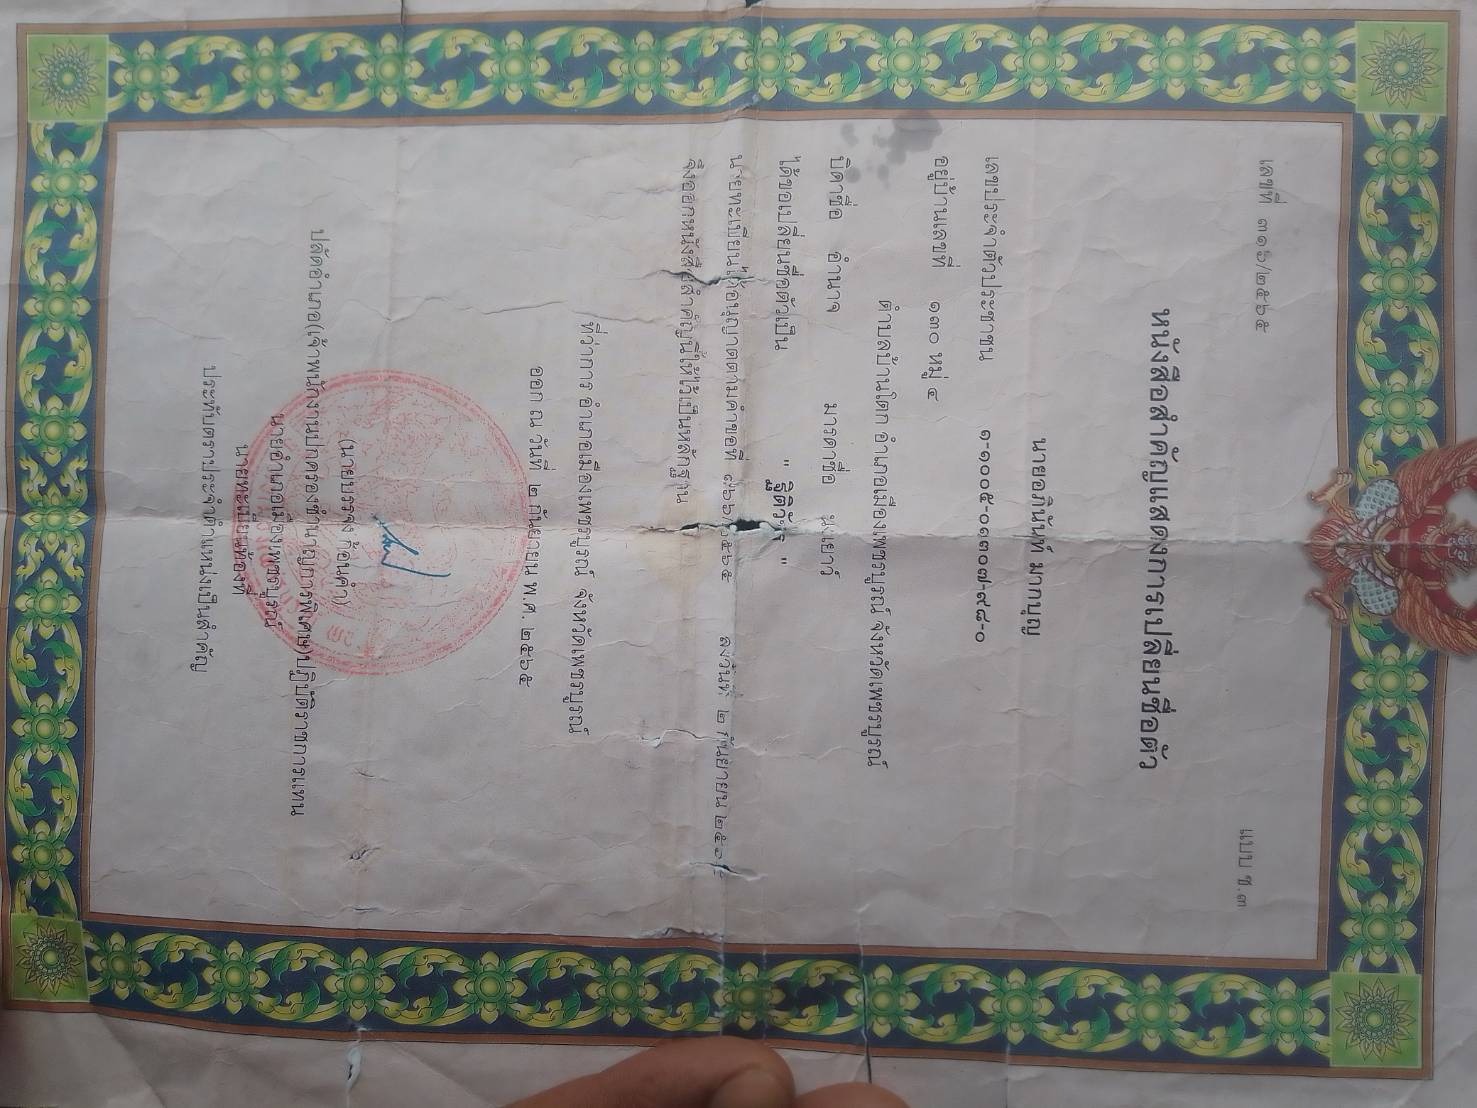 แบบ ช.๓
เลขที่ ๓๑๖/๒๕๖๕
หนังสือสำคัญแสดงการเปลี่ยนชื่อตัว
นายอภินันท์ มากบุญ
เลขประจำตัวประชาชน ๑-๑๐๐๕-๐๑๓๐๗-๙๘-๐
อยู่บ้านเลขที่ ๑๓๐ หมู่ ๔
ตำบลบ้านโคก อำเภอเมืองเพชรบูรณ์ จังหวัดเพชรบูรณ์
บิดาชื่อ อำนาจ มารดาชื่อ นงเยาว์
ได้ขอเปลี่ยนชื่อตัวเป็น
นายทะเบียนได้อนุญาตตามคำขอที่ ลงวันที่ ๒ กันยายน
จึงออกหนังสือสำคัญนี้ให้ไว้เป็นหลักฐาน
ที่ว่าการ อำเภอเมืองเพชรบูรณ์ จังหวัดเพชรบูรณ์
ออก ณ วันที่ ๒ กันยายน พ.ศ. ๒๕๖๕
(นายบรรจง ก้อนคำ)
ปลัดอำเภอ(เจ้าพนักงานปกครองชำนาญการพิเศษ)ปฏิบัติราชการแทน
นายอำเภอเมืองเพชรบูรณ์
นายทะเบียนท้องที่
ประทับตราประจำตำแหน่งเป็นสำคัญ